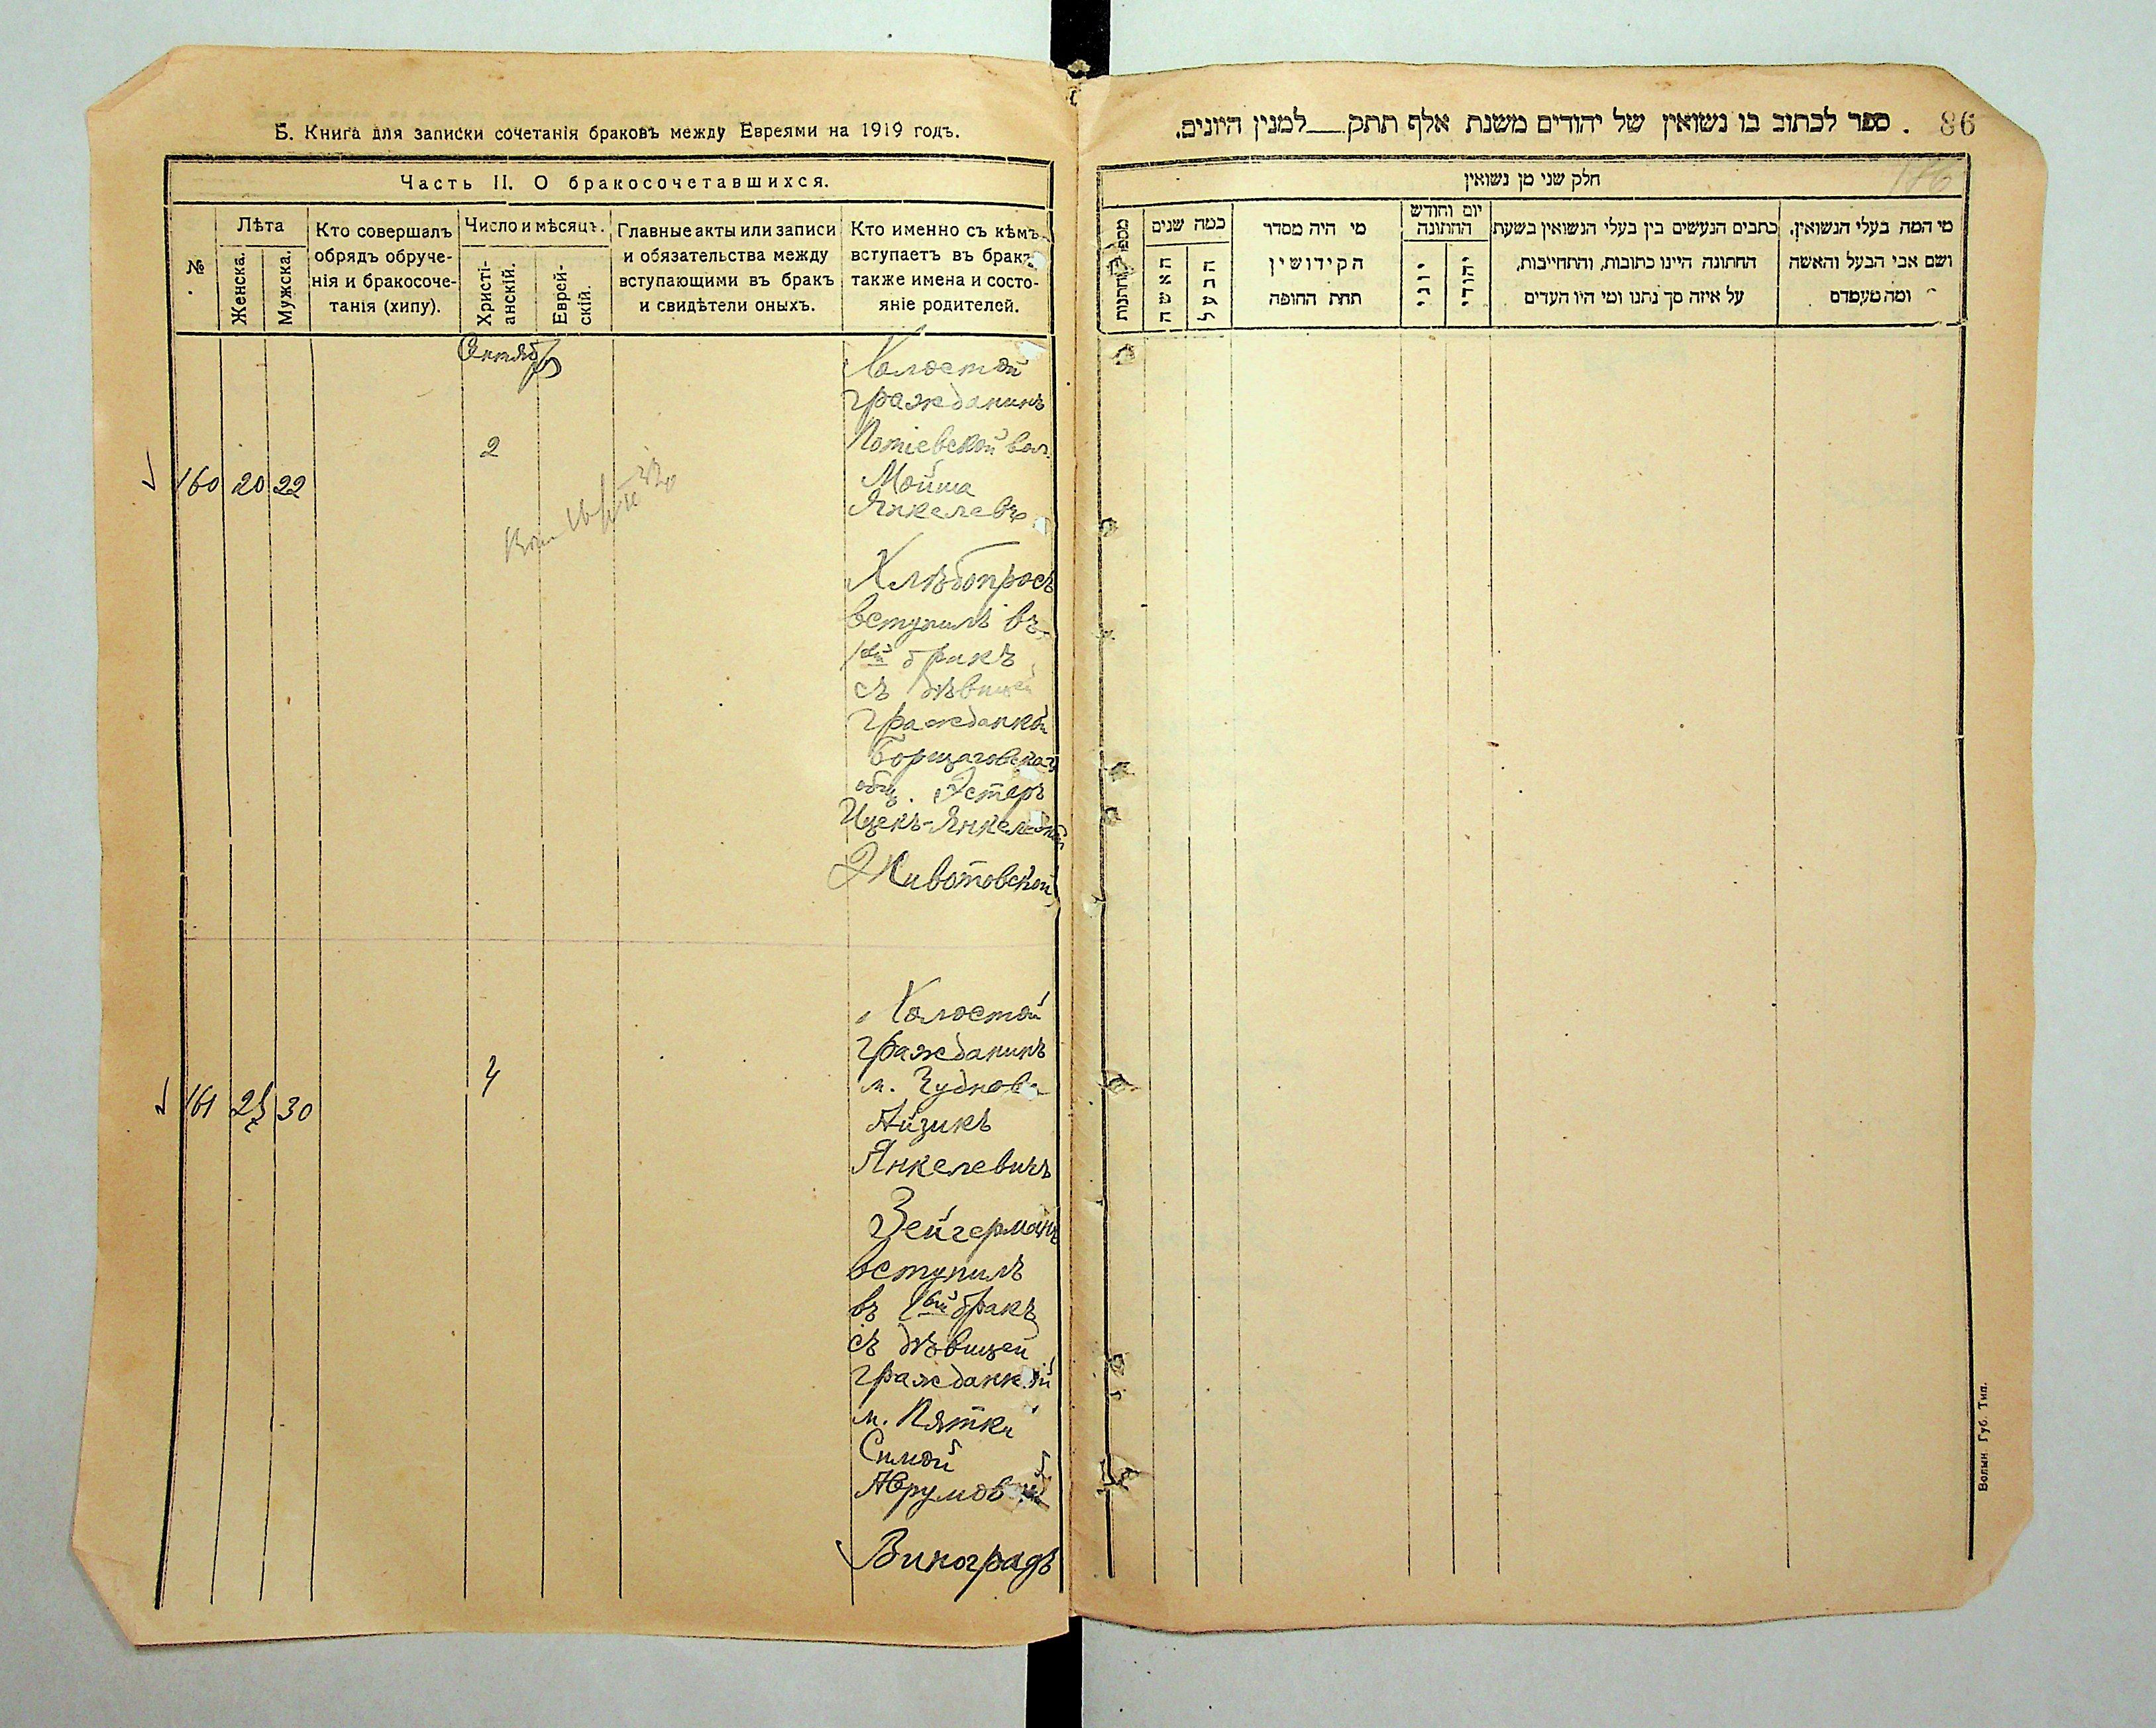 Б. Книга для записки сочетанія браковъ между Евреями на 1919 годъ.
Часть II. О бракосочетавшихся.
№
Лѣта
Женска.
Мужска.
Кто совершалъ
обрядъ обруче-
нія и бракосоче-
танія (хипу).
Число и мѣсяцъ.
Христі-
анскій.
Еврей-
скій.
Главные акты или записи
и обязательства между
вступающими въ бракъ
и свидѣтели оныхъ.
Кто именно съ кѣмъ
вступаетъ въ бракъ
также имена и состо-
яніе родителей.
Октябрь
160 20 22
2
Холостой
гражданинъ
Потіевской вол.
Мойша
Янкелевъ
Хлѣбопросъ
вступилъ въ
1вый бракъ
съ дѣвицей
гражданкой
Борщаговскаго
общ. Эстеръ
Ицекъ-Янкелевной
Животовской
161 30
4
Холостой
гражданинъ
м. Чуднова
Айзикъ
Янкелевичъ
Зейгерманъ
вступилъ
въ 1вый бракъ
съ дѣвицей
гражданкой
м. Пятки
Симой
Аврумовной
Виноградъ
86
ספר לכתוב בו נשואין של יהודים משנת אלף תתק__למנין היונים.
186
חלק שני מן נשואין
מי המה בעלי הנשואין,
ושם אבי הבעל והאשה
ומה מעמדם
כתבים הנעשים בין בעלי הנשואין בשעת
החתונה היינו כתובות, והתחייבות,
על איזה סך נתנו ומי היו העדים
יום וחודש
החתונה
יהודי
יוני
מי היה מסדר
הקידושין
תחת החופה
כמה שנים
הבעל
האשה
מספר החתונות
Волын Губ. Тип.